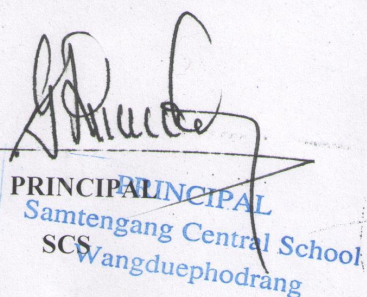 PRINCIPAL
PRINCIPAL
Samtengang Central School
SCS
Wangduephodrang